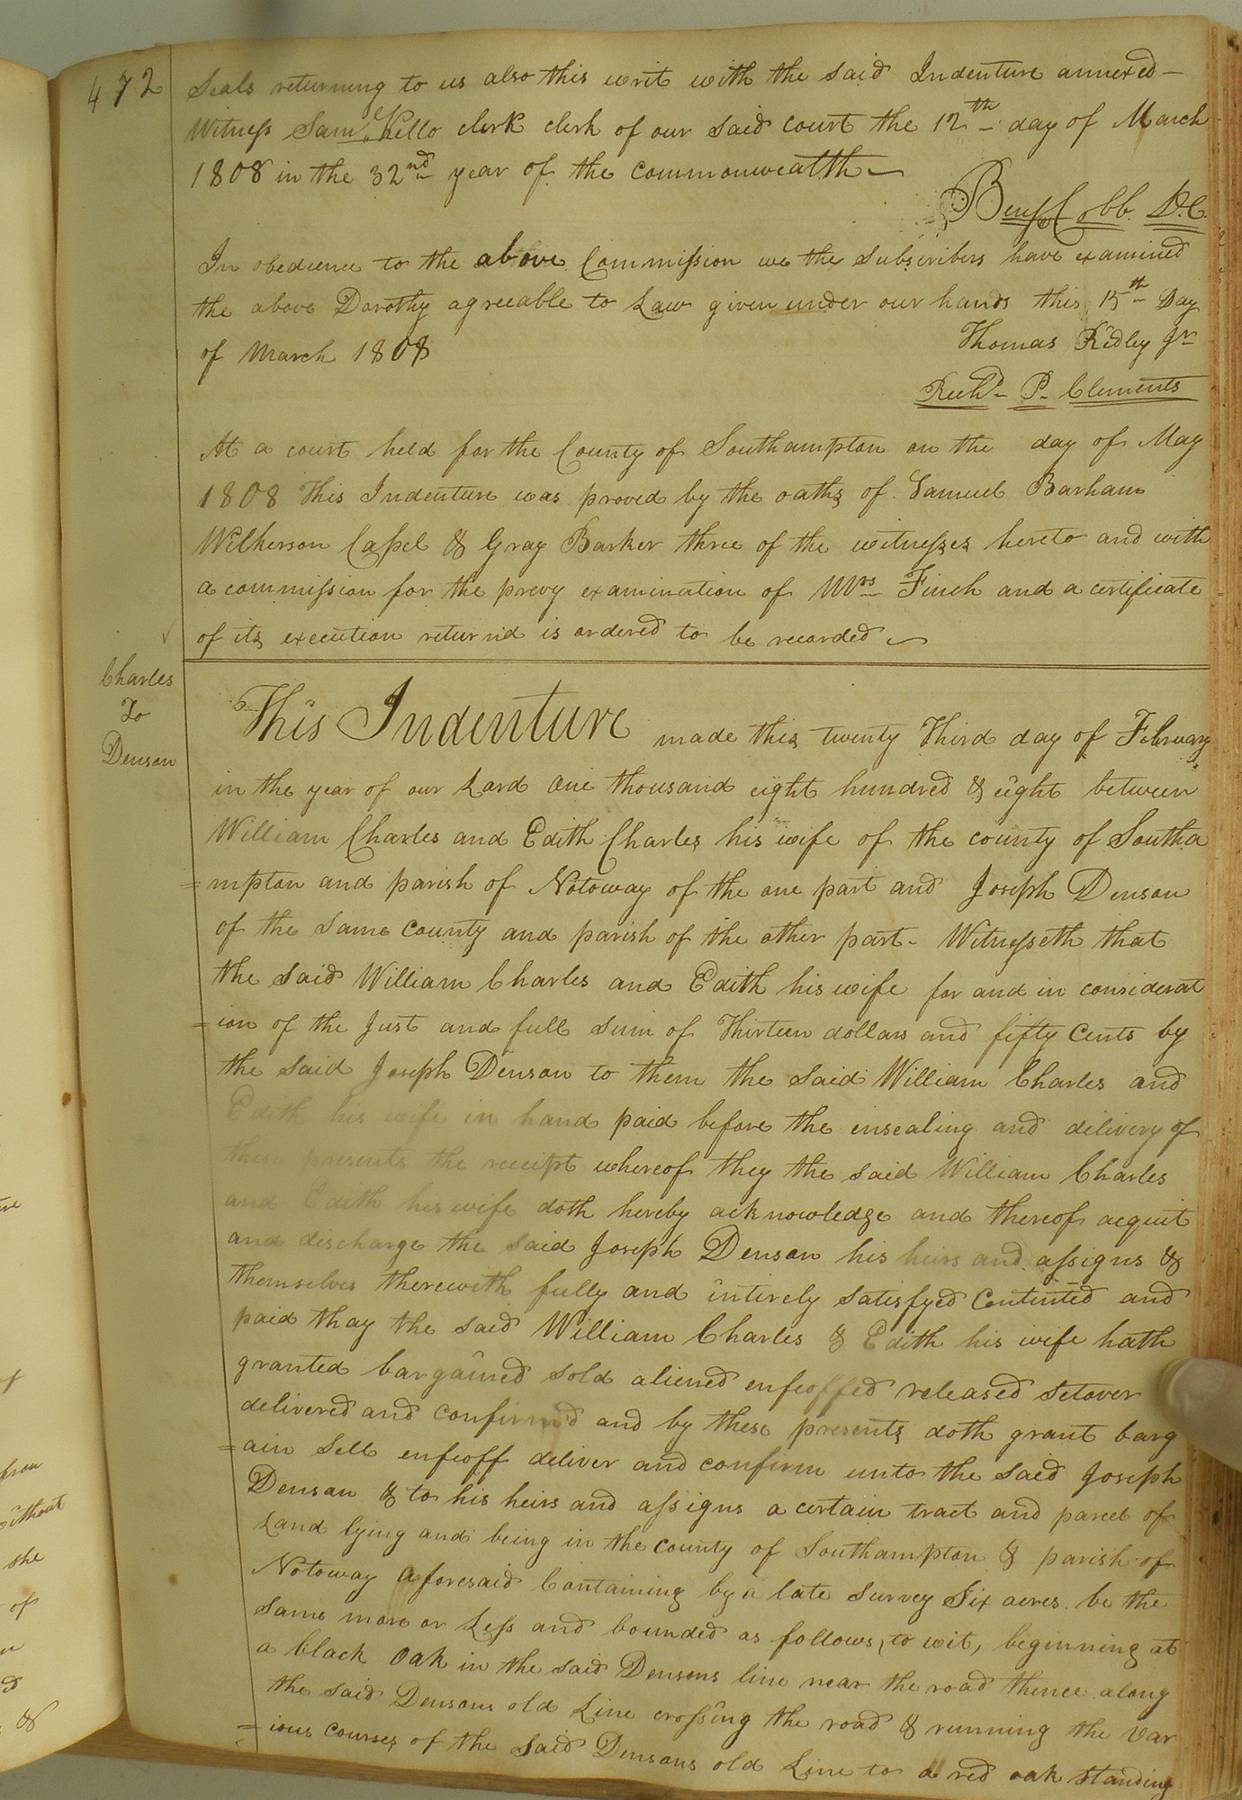 472
Seals returning to us also this writ with the said Indenture annexed—
Witness Saml. Kello clerk clerk of our said court the 12th day of March
1808 in the 32nd year of the commonwealth—
Benj. Cobb. D.C.
In obedience to the above Commission we the Subscribers have examined
the above Dorothy agreeable to Law given under our hands this 15th Day
of March 1808
Thomas Ridley Jr
Richd. P. Clements
At a court held for the County of Southampton on the day of May
1808 This Indenture was proved by the oaths of Samuel Barham
Wilkerson Capel & Gray Barker three of the witnesses hereto and with
a commission for the prevy examination of Mrs Finch and a certificate
of its execution returnd is ordered to be recorded—
Charles
To
Denson
This Indenture made this twenty Third day of February
in the year of our Lord one thousand eight hundred & eight between
William Charles and Edith Charles his wife of the county of Southa
=mpton and parish of Notoway of the one part and Joseph Denson
of the same county and parish of the other part- Witnesseth that
the said William Charles and Edith his wife for and in considerat
=ion of the Just and full sum of Thirteen dollars and fifty Cents by
the said Joseph Denson to them the said William Charles and
Edith his wife in hand paid before the ensealing and delivery of
these presents the receipt whereof they the said William Charles
and Edith his wife doth hereby acknowledge and thereof acquit
and discharge the said Joseph Denson his heirs and assigns &
themselves therewith fully and intirely satisfyed Contented and
paid thay the said William Charles & Edith his wife hath
granted bargained sold aliened enfeoffed released setover
delivered and confirmd and by these presents doth grant barg
=ain sell enfeoff deliver and confirm unto the said Joseph
Denson & to his heirs and assigns a certain tract and parcel of
Land lying and being in the county of Southampton & parish of
Notoway aforesaid Containing by a late survey Six acres be the
same more or Less and bounded as follows, to wit, beginning at
a black oak in the said Densons line near the road thence along
the said Densons old Line crossing the road & running the var
=ious courses of the said Densons old Line to a red oak standing